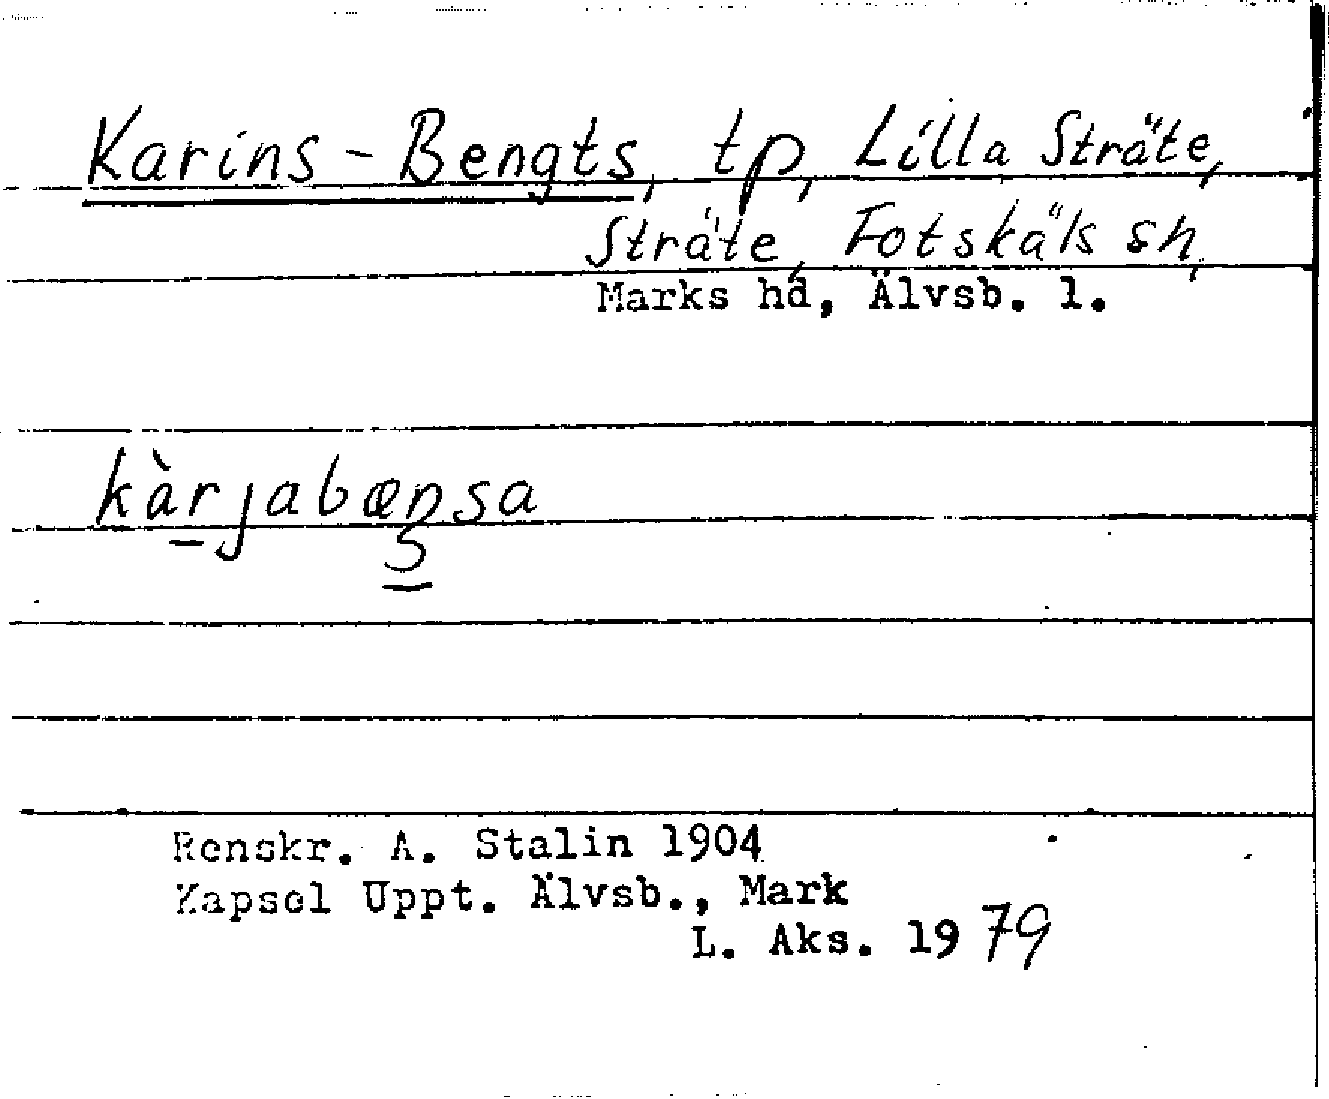 Karins-Bengts, tp, Lilla Sträte,
Sträte, Fotskäls sn,
Marks hd, Älvsb. l.
kàrjabænsa
Renskr. A. Stalin 1904
Kapsel Uppt. Älvsb., Mark
L. Aks. 1979